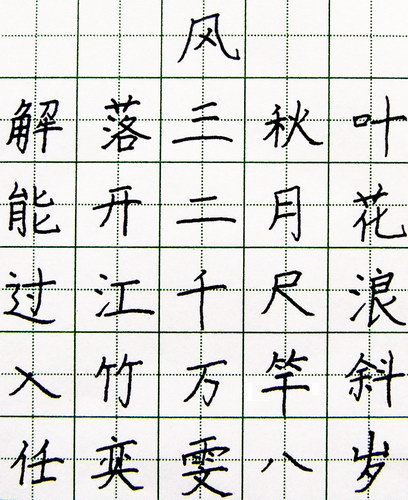 风
解落三秋叶
能开二月花
过江千尺浪
入竹万竿斜
任奕雯八岁